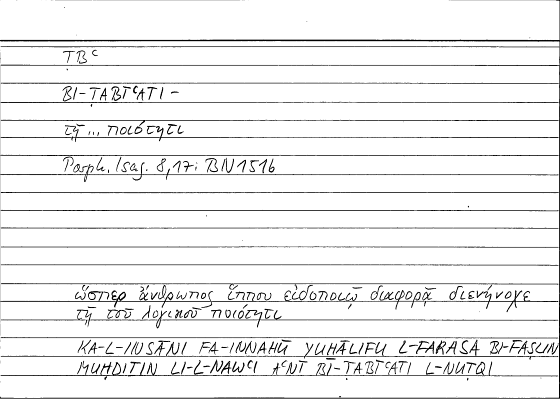 ṬBʿ
BI-ṬABĪʿATI-
τῇ... ποιότητι
Porph. Isag. 8,17; BN1516
ὥσπερ ἄνθρωπος ἵππου εἰδοποιῷ διαφορᾷ διενήνοχε
τῇ τοῦ λογικοῦ ποιότητι
KA-L-INSĀNI FA-INNAHŪ YUḪĀLIFU L-FARASA BI-FAṢLIN
MUḤDIṮIN LI-L-NAWʿI AʿNĪ BI-ṬABĪʿATI L-NUṬQI